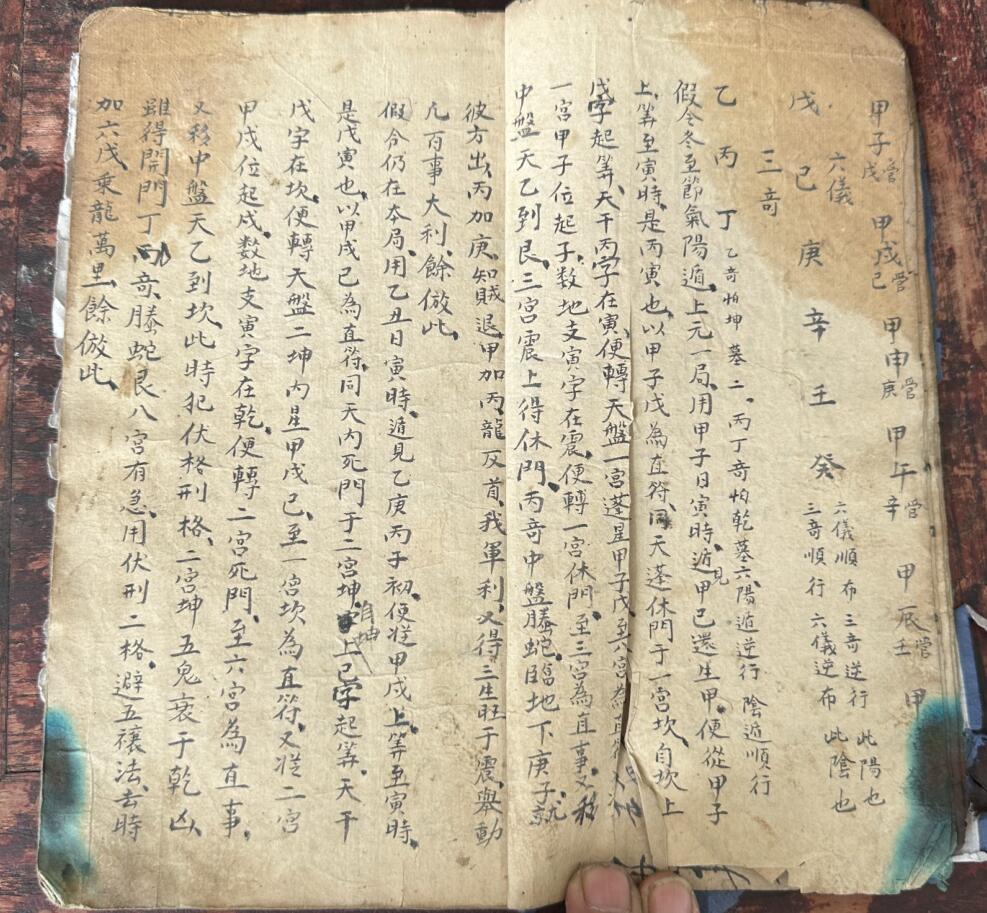 甲子戊營 甲戌己營 甲申庚營 甲午辛營 甲辰壬營 甲
六儀
戊 己 庚 辛 壬 癸 六儀順布 三奇逆行 此陽也
三奇順行 六儀逆布 此陰也
三奇
乙 丙 丁 乙奇怕坤墓二、丙丁奇怕乾墓六、陽遁逆行 陰遁順行
假令冬至節氣陽遁、上元一局、用甲子日寅時、遁見甲己還生甲、便從甲子
上、筭至寅時、是丙寅也、以甲子戊為直符、同天蓬休門于一宮坎、自坎上
戊字起筭、天干丙字在寅、便轉天盤一宮蓬星甲子戊、至六宮為直符、又
一宮甲子位起子、數地支寅字在震、便轉一宮休門、至三宮為直事、又移
中盤天乙到艮、三宮震上得休門、丙奇中盤螣蛇臨地下庚子、就
彼方出、丙加庚、知賊退、甲加丙、龍反首、我軍利、又得三生旺于震、舉動
凢百事大利、餘倣此、
假令仍在本局、用乙丑日寅時、遁見乙庚丙子初、便從甲戌上、筭至寅時、
是戊寅也、以甲戌己為直符、同天內死門于二宮坤、自坤上己字起筭、天干
戊字在坎、便轉天盤二坤內星甲戌己、至一宮坎為直符、又從二宮
甲戌位起戌、數地支寅字在乾、便轉二宮死門、至六宮為直事、
又移中盤天乙到坎、此時犯伏格刑格、二宮坤五鬼衰于乾凶、
雖得開門丁丙奇、螣蛇艮八宮有急、用伏刑二格、避五禳法、去時
加六戊、乘龍萬里、餘倣此、